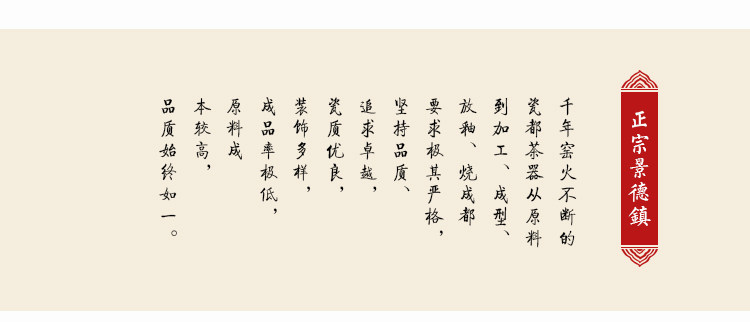 正宗景德鎮
千年窑火不断的
瓷都茶器从原料
到加工、成型、
放釉、烧成都
要求极其严格，
坚持品质、
追求卓越，
瓷质优良，
装饰多样，
成品率极低，
原料成
本较高，
品质始终如一。